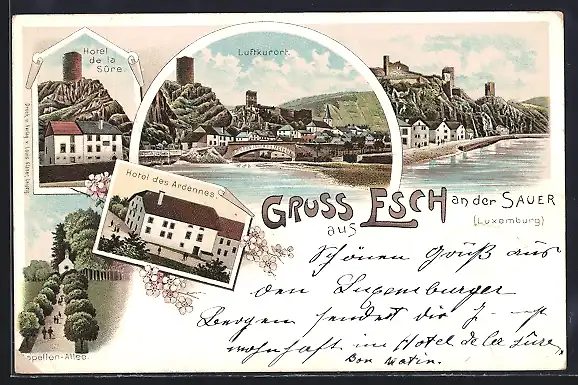 Hotel
de la
Sûre.
Luftkurort.
Hotel des Ardennes.
Gruss
aus
Esch an der Sauer
(Luxemburg)
Kapellen-Allee.
Schönen Gruß aus
den Lugemburger
Bergen sendet dir
wohnhaft im Hotel de la Sure
Bon matin.